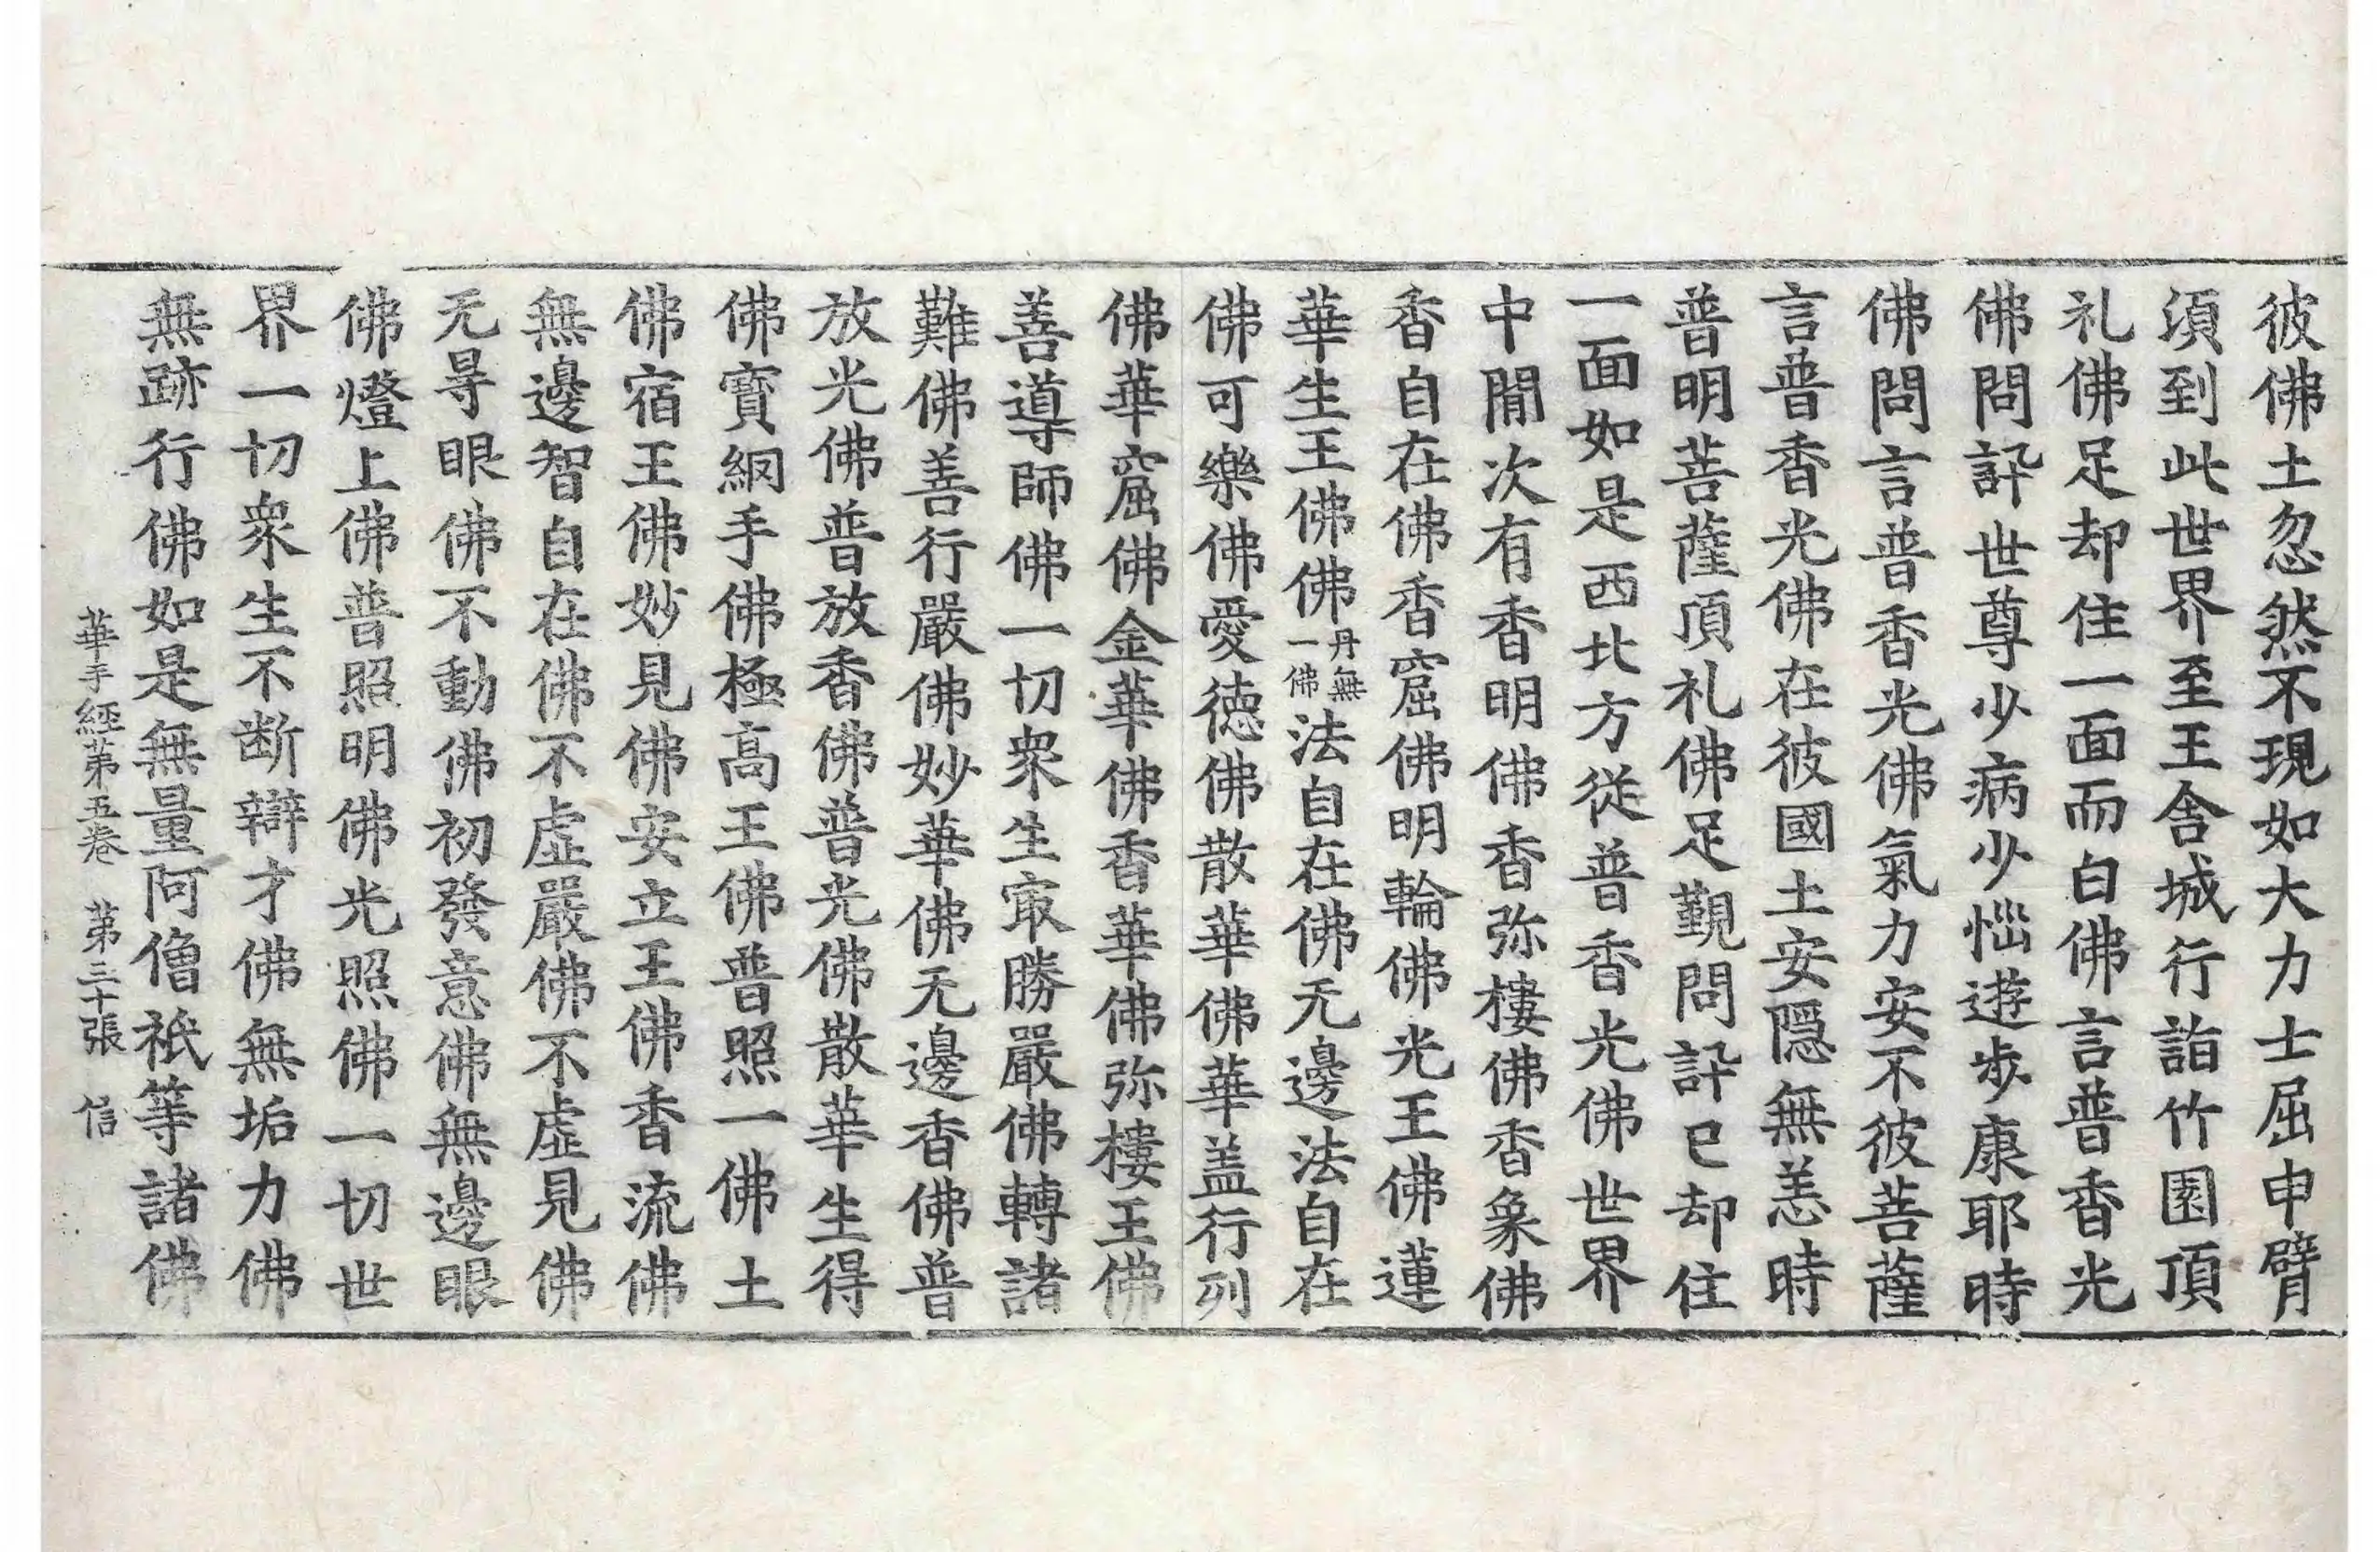 彼佛土忽然不現如大力士屈申臂
湏到此世界至王舎城行詣竹園頂
礼佛足却住一面而白佛言普香光
佛問訊世尊少病少惱遊步康耶時
佛問言普香光佛氣力安不彼菩薩
言普香光佛在彼國土安隱無恙時
普明菩薩頂礼佛足覲問訊已却住
一面如是西北方從普香光佛世界
中閒次有香明佛香弥樓佛香象佛
香自在佛香窟佛明輪佛光王佛蓮
華生王佛佛丹無一佛法自在佛无邊法自在
佛可樂佛愛德佛散華佛華盖行列
佛華窟佛金華佛香華佛弥樓王佛
善導師佛一切衆生㝡勝嚴佛轉諸
難佛善行嚴佛妙華佛无邊香佛普
放光佛普放香佛普光佛散華生得
佛寳網手佛極高王佛普照一佛土
佛宿王佛妙見佛安立王佛香流佛
無邊智自在佛不虛嚴佛不虛見佛
无㝵眼佛不動佛初發意佛無邊眼
佛燈上佛普照明佛光照佛一切世
界一切衆生不断辯才佛無垢力佛
無跡行佛如是無量阿僧祇等諸佛
華手經第五卷 第三十張 信